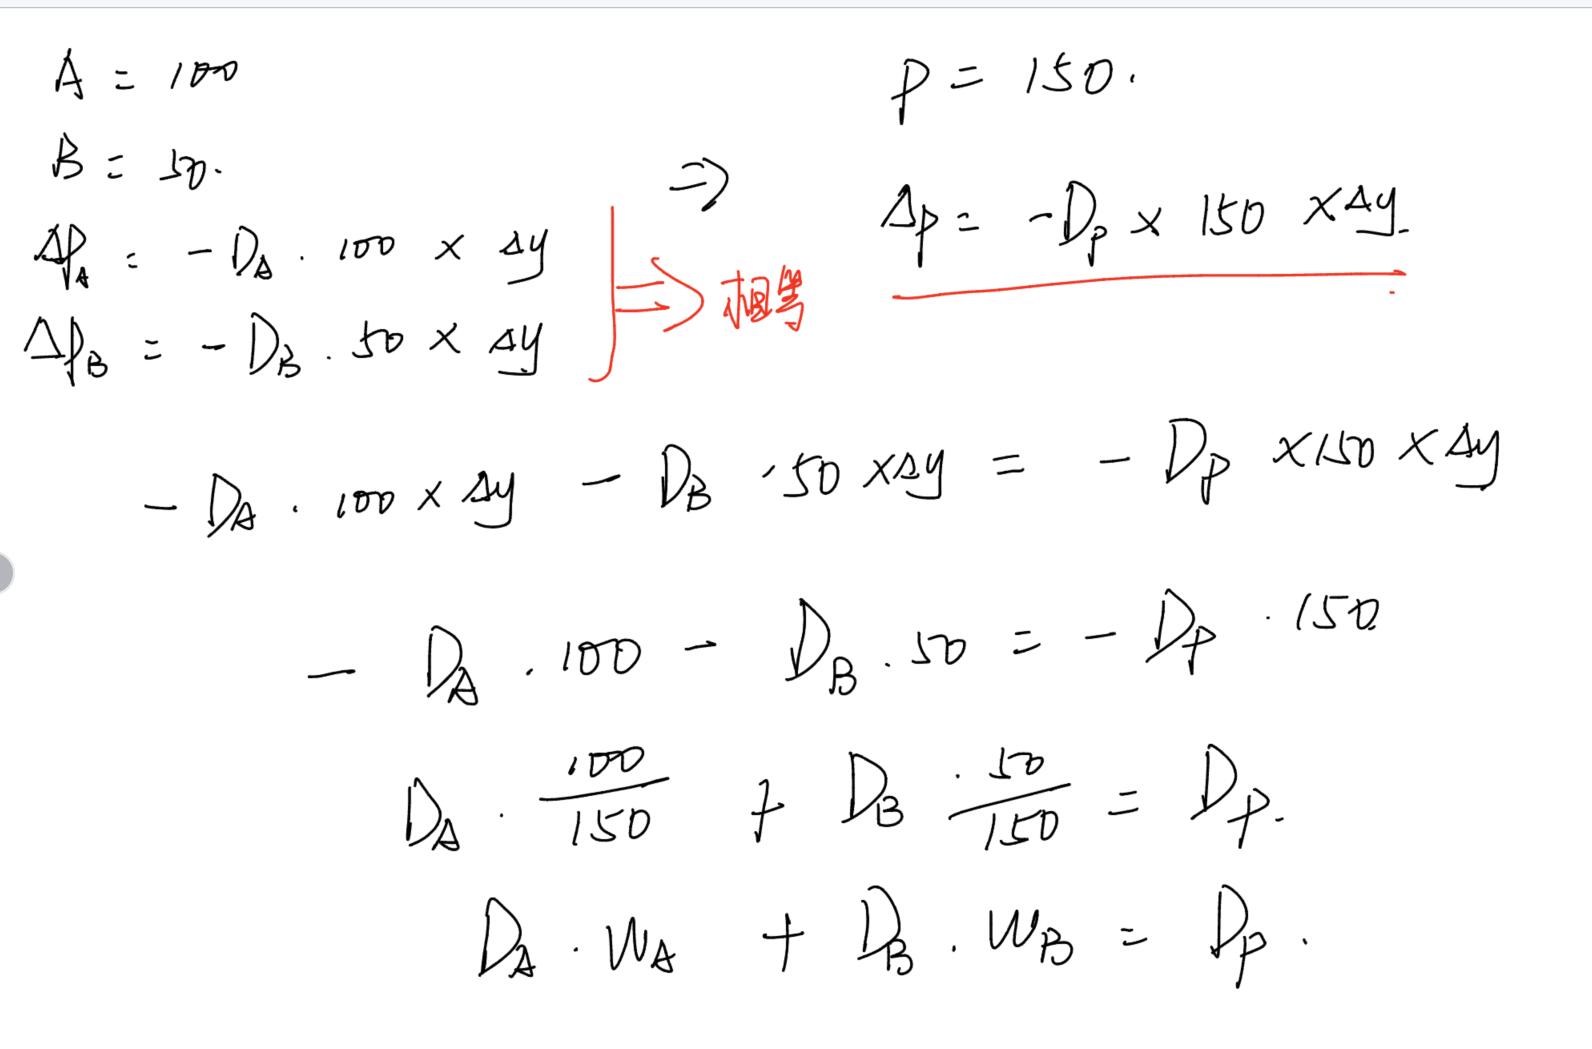 A = 100
B = 50.
ΔP_A = - D_A · 100 × Δy
ΔP_B = - D_B · 50 × Δy
⇒
⇒ 相等
P = 150.
ΔP = - D_P × 150 × Δy.
- D_A · 100 × Δy - D_B · 50 × Δy = - D_P × 150 × Δy
- D_A · 100 - D_B · 50 = - D_P · 150
D_A · 100/150 + D_B · 50/150 = D_P.
D_A · W_A + D_B · W_B = D_P.